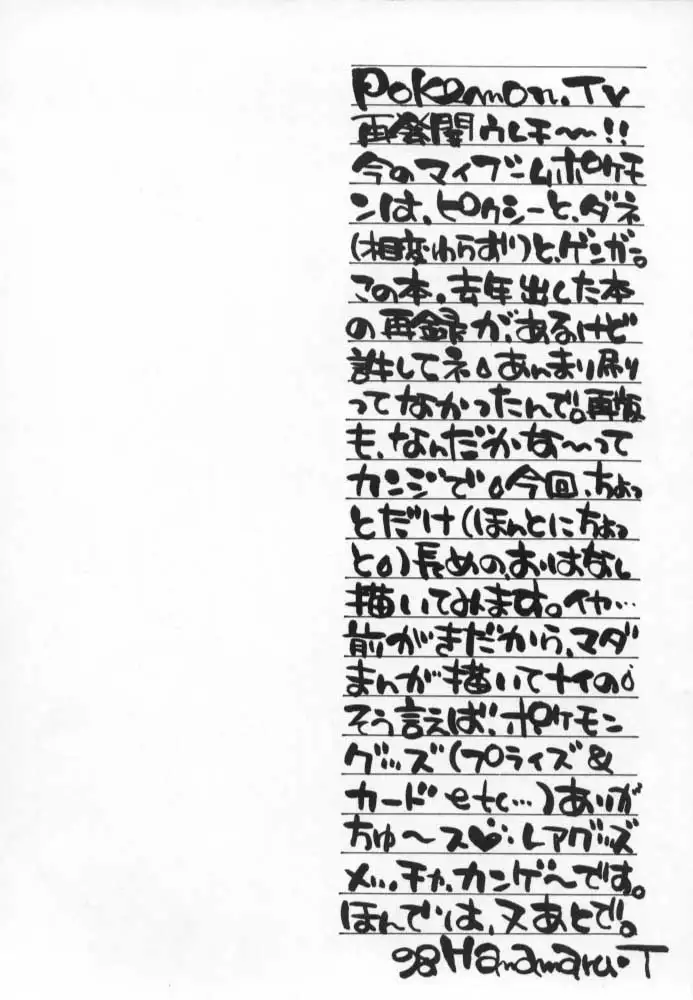 Pokemon.Tv
再発開ウレチ〜〜!!
今のマイブームポケモ
ンは、ピクシーと、ダネ
(相変わらず)と、ゲンガー。
この本。去年出した本
の再録が、あるけど
許してネ。あんまり刷り
ってなかったんで。再版
も、なんだかな〜って
カンジで。今回、ちょっ
とだけ(ほんとにちょっ
と。)長めの、おはなし
描いてみます。イヤ…
前がきだから、マダ
まんが描いてナイの。
そう言えば、ポケモン
グッズ(プライズ&
カード etc…)ありが
ちゅ〜ス♥:レアグッズ
メッ、チャ、カンゲ〜です。
ほんでは、又あとで。
98 Hanamaru・T